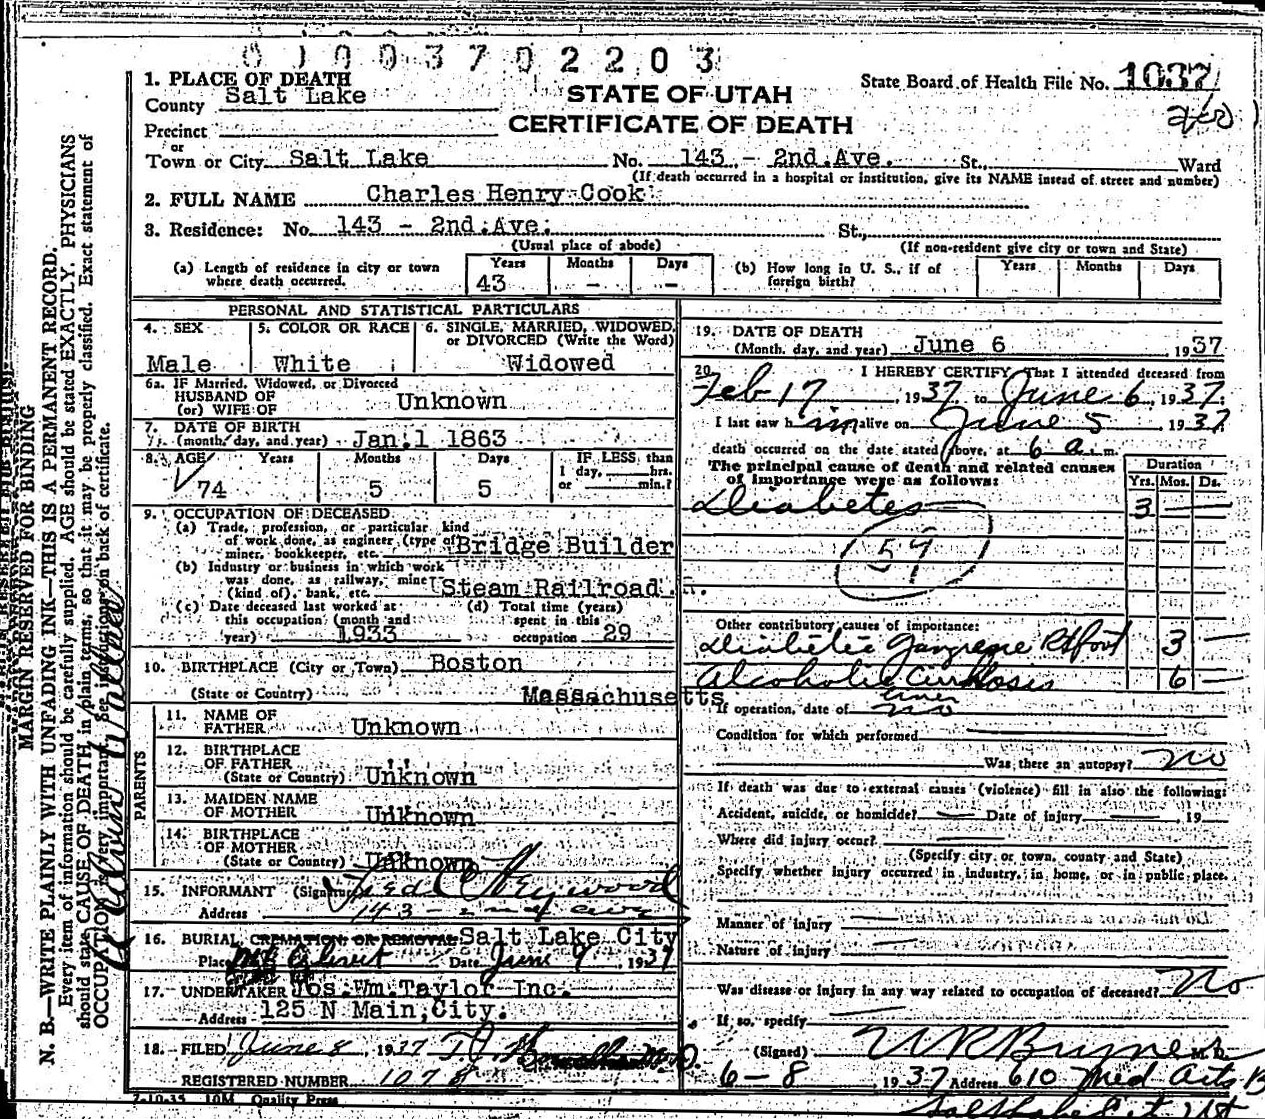 0 1 0 0 3 7 0 2 2 0 3
1. PLACE OF DEATH
County Salt Lake
STATE OF UTAH
CERTIFICATE OF DEATH
State Board of Health File No. 1037
Precinct
or
Town or City Salt Lake No. 143 - 2nd.Ave. St., Ward
(If death occurred in a hospital or institution, give its NAME insead of street and number)
2. FULL NAME Charles Henry Cook
3. Residence: No. 143 - 2nd.Ave. St.,
(Usual place of abode) (If non-resident give city or town and State)
(a) Length of residence in city or town where death occurred. Years 43 Months - Days -
(b) How long in U. S., if of foreign birth? Years Months Days
PERSONAL AND STATISTICAL PARTICULARS
4. SEX Male
5. COLOR OR RACE White
6. SINGLE, MARRIED, WIDOWED, or DIVORCED (Write the Word) Widowed
6a. IF Married, Widowed, or Divorced
HUSBAND OF
(or) WIFE OF Unknown
7. DATE OF BIRTH
(month, day, and year) Jan.1 1863
8. AGE Years Months Days IF LESS than
1 day, hrs.
or min.?
74 5 5
9. OCCUPATION OF DECEASED
(a) Trade, profession, or particular kind
of work done, as engineer (type of
miner, bookkeeper, etc. Bridge Builder
(b) Industry or business in which work
was done, as railway, mine
(kind of), bank, etc. Steam Railroad.
(c) Date deceased last worked at
this occupation (month and
year) 1933
(d) Total time (years)
spent in this
occupation 29
10. BIRTHPLACE (City or Town) Boston
(State or Country) Massachusetts
PARENTS
11. NAME OF
FATHER Unknown
12. BIRTHPLACE
OF FATHER
(State or Country) Unknown
13. MAIDEN NAME
OF MOTHER Unknown
14. BIRTHPLACE
OF MOTHER
(State or Country) Unknown
15. INFORMANT (Signature) Fred C Heywood
Address 143 - 2nd ave
16. BURIAL, CREMATION, OR REMOVAL Salt Lake City
Place Mt Olivet Date June 9 1937
17. UNDERTAKER Jos.Wm.Taylor Inc.
Address 125 N Main,City.
18. FILED June 8, 1937
REGISTERED NUMBER 1078
7-10-35 10M Quality Press
19. DATE OF DEATH
(Month, day, and year) June 6 1937
20. I HEREBY CERTIFY That I attended deceased from
Feb 17, 1937 to June 6, 1937.
I last saw h im alive on June 5 1937
death occurred on the date stated above, at 6 a. m.
The principal cause of death and related causes
of importance were as follows:
Duration
Yrs. Mos. Ds.
Diabetes 3 —
59
Other contributory causes of importance:
Diabetic Gangrene Rt foot 3 —
Alcoholic Cirrhosis 6 —
liver
If operation, date of no
Condition for which performed
Was there an autopsy? no
If death was due to external causes (violence) fill in also the following:
Accident, suicide, or homicide? — Date of injury —, 19
Where did injury occur? —
(Specify city or town, county and State)
Specify whether injury occurred in industry, in home, or in public place.
Manner of injury —
Nature of injury —
Was disease or injury in any way related to occupation of deceased? No
If so, specify
(Signed) M. D.
6 - 8 1937 Address 610 Med Arts B
N. B.—WRITE PLAINLY WITH UNFADING INK—THIS IS A PERMANENT RECORD.
MARGIN RESERVED FOR BINDING
Every item of information should be carefully supplied. AGE should be stated EXACTLY. PHYSICIANS
should state CAUSE OF DEATH in plain terms, so that it may be properly classified. Exact statement of
OCCUPATION is very important. See instructions on back of certificate.